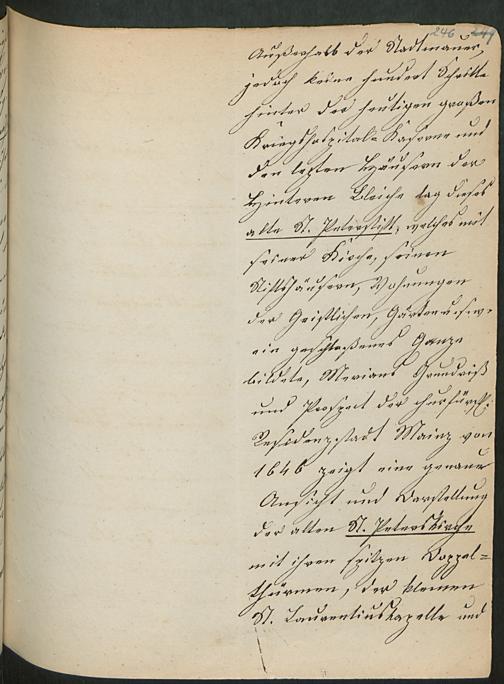 246 247
Außerhalb der Stadtmauer,
jedoch keine hundert Schritte
hinter der heutigen großen
Kriegshospital-Kaserne und
den letzten Häusern der
Hinteren Bleiche lag dieses
alte St. Peterstift, welches mit
seiner Kirche, seinen
Stiftshäusern, Wohnungen
der Geistlichen, Gärten u.s.w.
ein geschloßenes Ganze
bildete, Merians Grundriß
und Prospect der churfürstl.
Residenzstadt Mainz von
1646 zeigt eine genaue
Ansicht und Darstellung
der alten St. Peterskirche
mit ihren spitzen Doppel=
thürmen, der kleinen
St. Laurentiuskapelle und